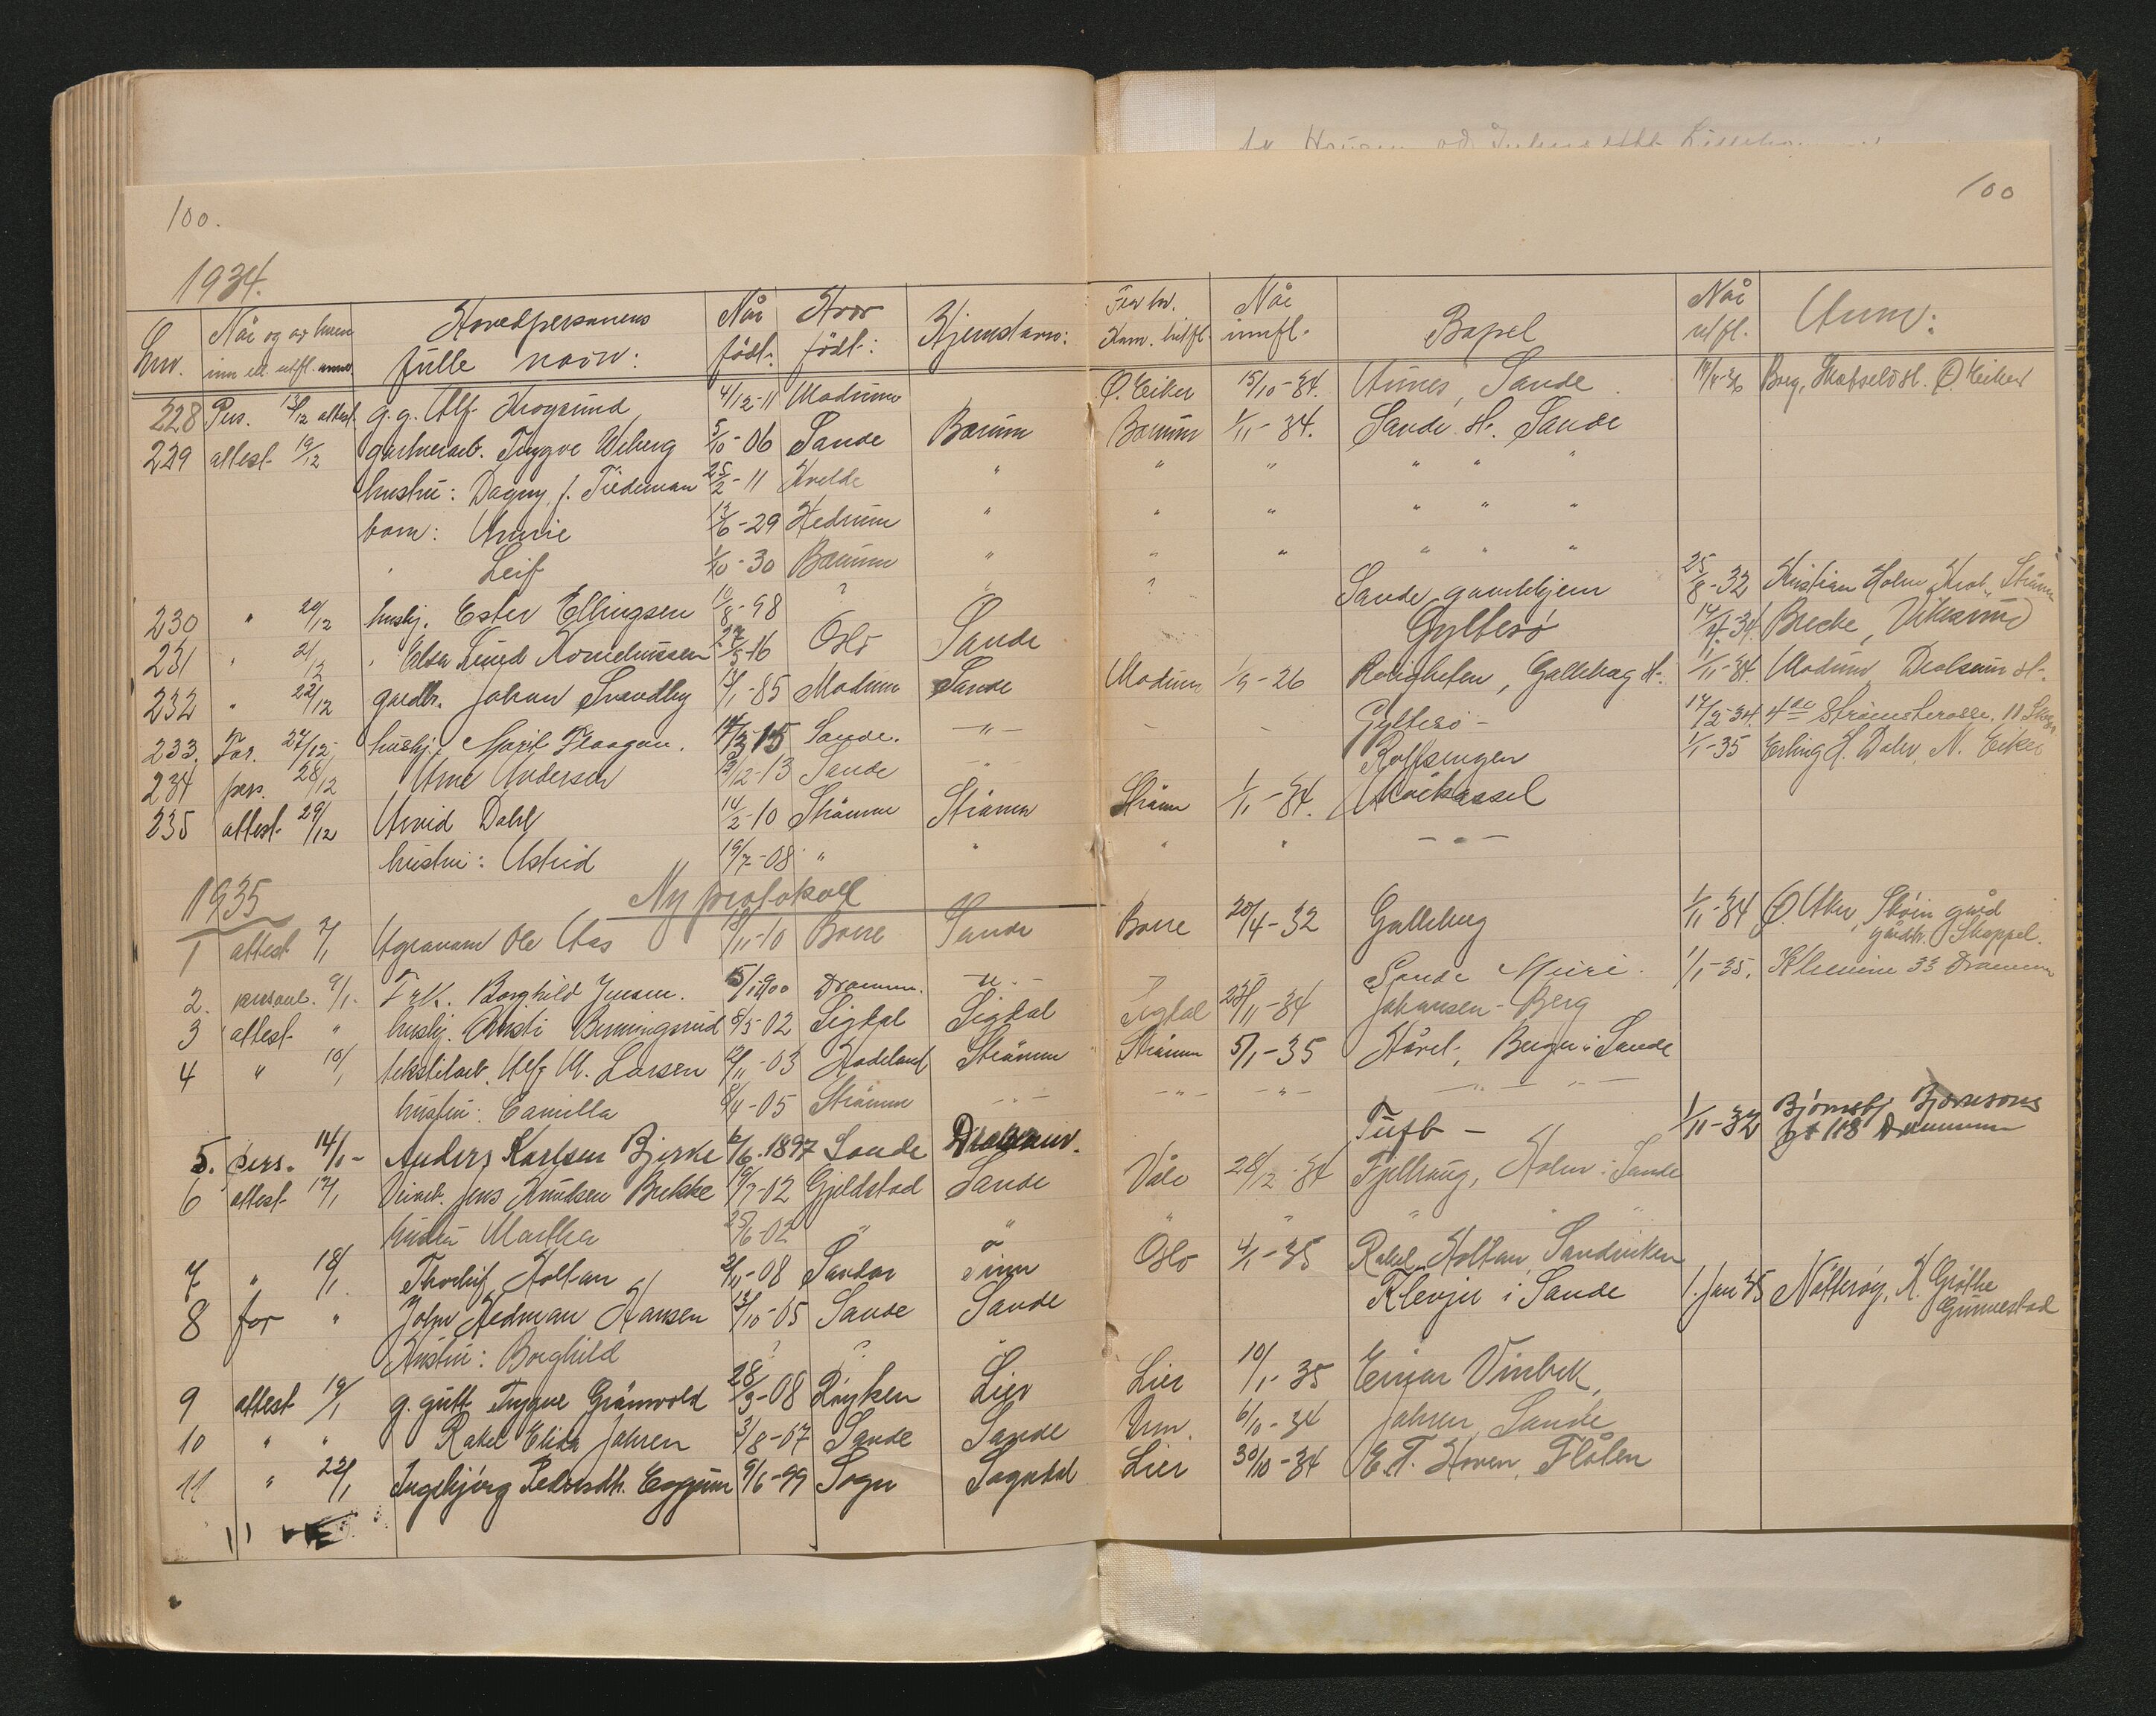 100.
100
1934.
Lnr. Når og av hvem inn el. utfl. anm. Hovedpersonens fulle navn: Når født: Hvor født: Hjemstavn: Fra hv. Kom. innfl. Når innfl. Bopel Når utfl. Anm:
228 Pers. 13/12 attest. g.g. Alf Krogsund 4/12-11 Modum Ø. Eiker 15/10-34. Aunes, Sande Borg, Ø. Eiker
229 attest 19/12 gartnerarb. Trygve Weberg 5/10-06 Sande Bærum Bærum 1/11-34. Sande st. Sande
hustru: Dagny f. Tiedeman 25/2-11 Kvelde " " " " " "
barn: Annie 12/6-29 Hedrum " " " " " "
" Leif 1/10-30 Bærum " " " " " "
230 " 20/12 hushj. Ester Ellingsen 10/8-98 ? ? ? Sande gamlehjem 25/8-32 Kristian Holm, Strømm
231 " 21/12 " Elsa Korneliussen 27/5-16 Oslo Sande Gylterø 14/4-34. Brecke, Vikersund
232 " 22/12 gårdbr. Johan Svendby 13/1-85 Modum Sande Modum 1/5-26 Roligheten, Galleberg st. 1/11-34. Modum, st.
233. For. 27/12 hushj. Marit Flaagan. 17/3 15 Sande. —"— - - Gylterø - 17/2-34. 4de Strømsterasse. 11
234 pers. 28/12 Arne Andersen 12/12-13 Sande —"— Rolfsengen 1/1-35 Erling H. Dahr, N. Eiker
235 attest 29/12 Arvid Dahl 14/2-10 Strømm Strømm Strømm 1/1-34. Mørkassel
hustru: Astrid 19/7-08 " " " " — " —
1935 Ny protokoll
1 attest 7/1 Agronom Ole Aas 18/11-10 Borre Sande Borre 20/4-32 Galleberg 1/11-34 Ø. Aker, gård
gårdbr. Skoppel.
2. personl. 9/1. Frk. Borghild Jensen. 5/1 1900 Dramm. —"— Sande 1/1-35. 33 Drammen
3 attest " hushj. Kristi Bermingsrud 5/5-02 Sigdal Sigdal Sigdal 23/11-34 Johansen - Berg
4 " 10/1 tekstilarb. Alf M. Larsen 12/11-03 Hadeland Strømm Strømm 5/1-35 Håvet, Bergn i Sande
hustru: Camilla 8/4-05 Strømm —"— —"— —"— —"— "—
5. pers. 14/1- Anders Karlsen Bjerke 6/6-1897 Sande Dramm. Tuft - 1/11-32 Bjørnstj Bjørnsons
gt 118 Drammen
6 attest 17/1 Veiarb. Jens Knudsen Brekke 19/7-02 Gjeldstad Sande Våle 28/12-34 Fjellhaug, Holm i Sande
hustru Martha 25/6-02 " " " " " " "
7 " 18/1 Thorleif Holtan 21/11-08 Sandar Tinn Oslo 4/1-35 Rakel Holtan, Sandviken
8 for " John Hedman Hansen 13/10-05 Sande Sande Klevjer i Sande 1. jan 35 Nøtterøy, K. Grøthe
Gunnestad
Hustru: Borghild ? ? "
9 attest 19/1 g. gutt Trygve Grønvold 28/3-08 Røyken Lier Lier 10/1-35 Einar Vinbek,
10 " " Rakel Elida Jahren 3/8-07 Sande Sande Drm. 6/11-34 Jahren, Sande
11 " 22/1 Ingebjørg Pedersdtr. Eggum 9/6-99 Sogn Sogndal Lier 30/10-34 E. T. Hoven, Flåten